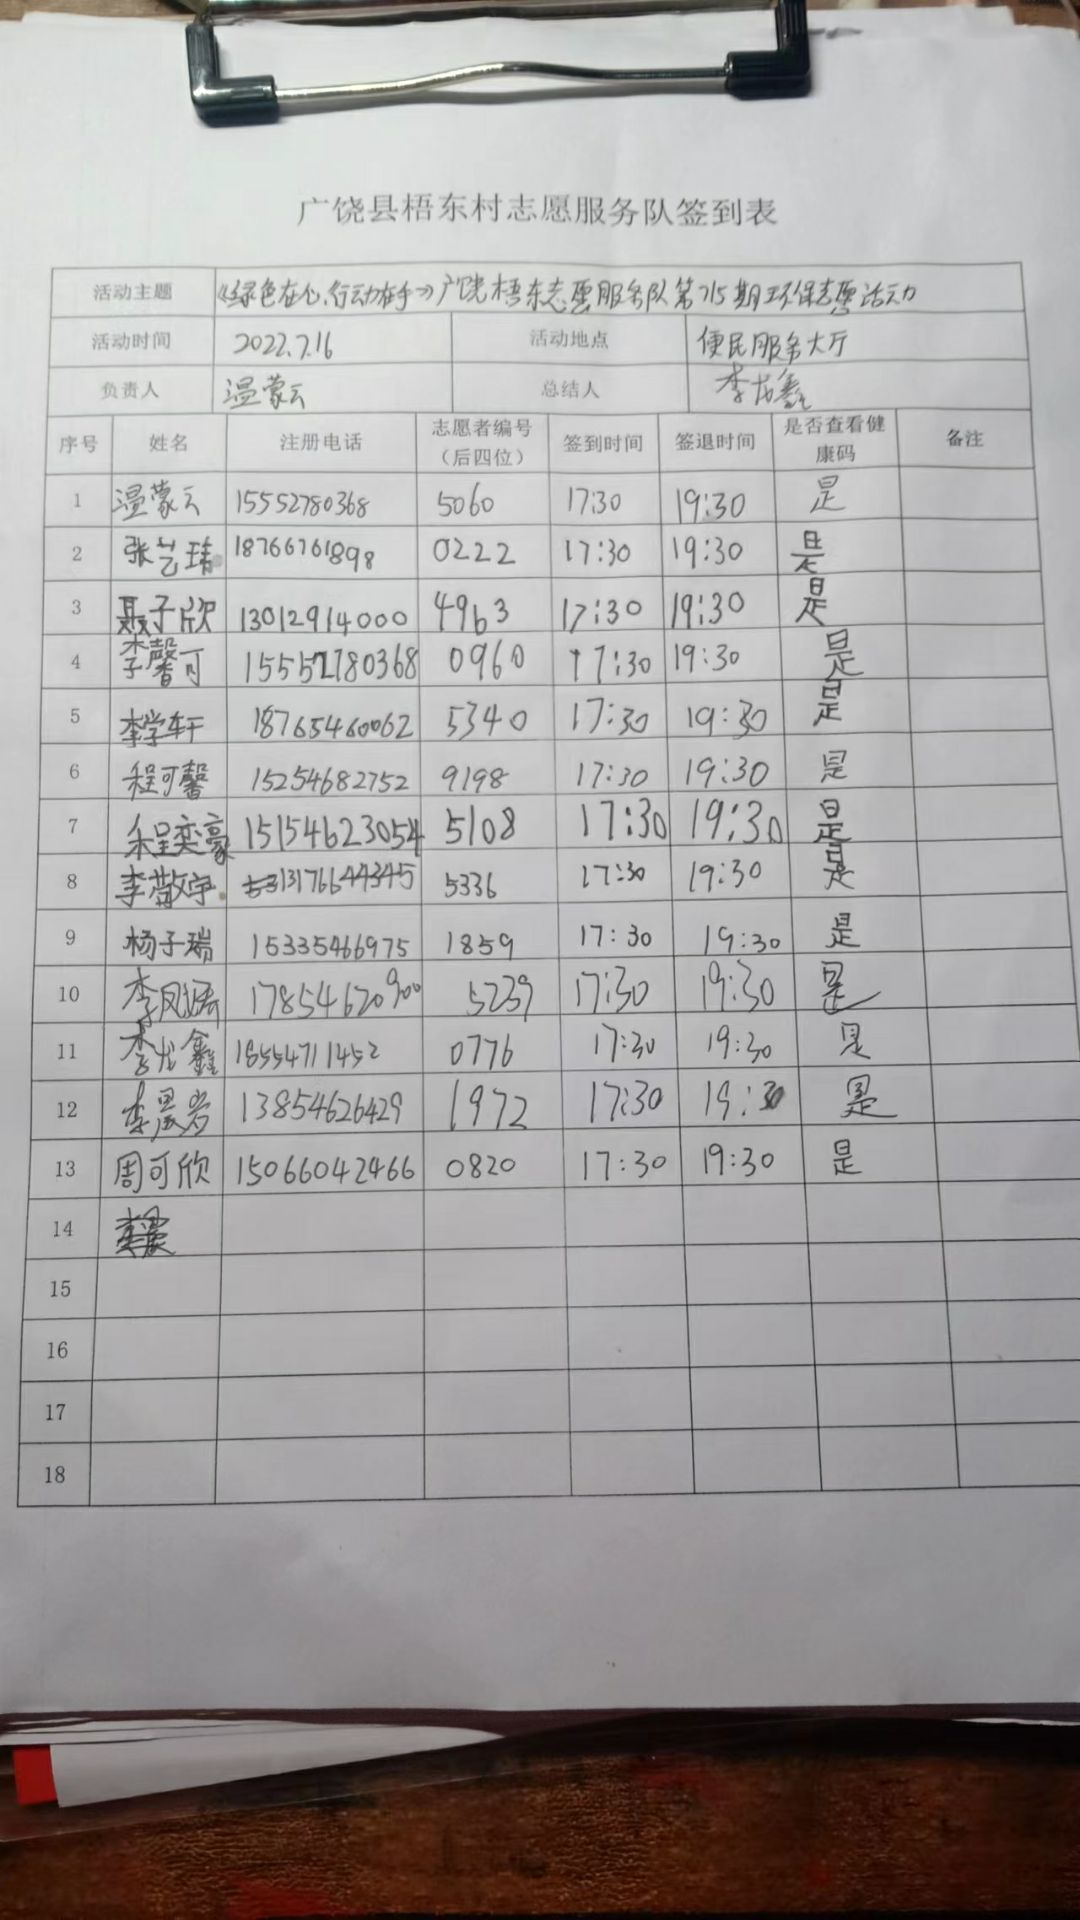 广饶县梧东村志愿服务队签到表
活动主题 《绿色在心、行动在手》广饶梧东志愿服务队第715期环保志愿活动
活动时间 2022.7.16 活动地点 便民服务大厅
负责人 温蒙云 总结人 李龙鑫
序号 姓名 注册电话 志愿者编号（后四位） 签到时间 签退时间 是否查看健康码 备注
1 温蒙云 15552780368 5060 17:30 19:30 是
2 张艺瑋 18766761898 0222 17:30 19:30 是
3 聂子欣 13012914000 4963 17:30 19:30 是
4 李馨可 15552780368 0960 17:30 19:30 是
5 李学轩 18765460062 5340 17:30 19:30 是
6 程可馨 15254682752 9198 17:30 19:30 是
7 程奕豪 15154623054 5108 17:30 19:30 是
8 李敬宇 13176644345 5336 17:30 19:30 是
9 杨子瑞 15335466975 1859 17:30 19:30 是
10 李凤 17854620900 5239 17:30 19:30 是
11 李龙鑫 18554711452 0776 17:30 19:30 是
12 李 13854626429 1972 17:30 19:30 是
13 周可欣 15066042466 0820 17:30 19:30 是
14
15
16
17
18